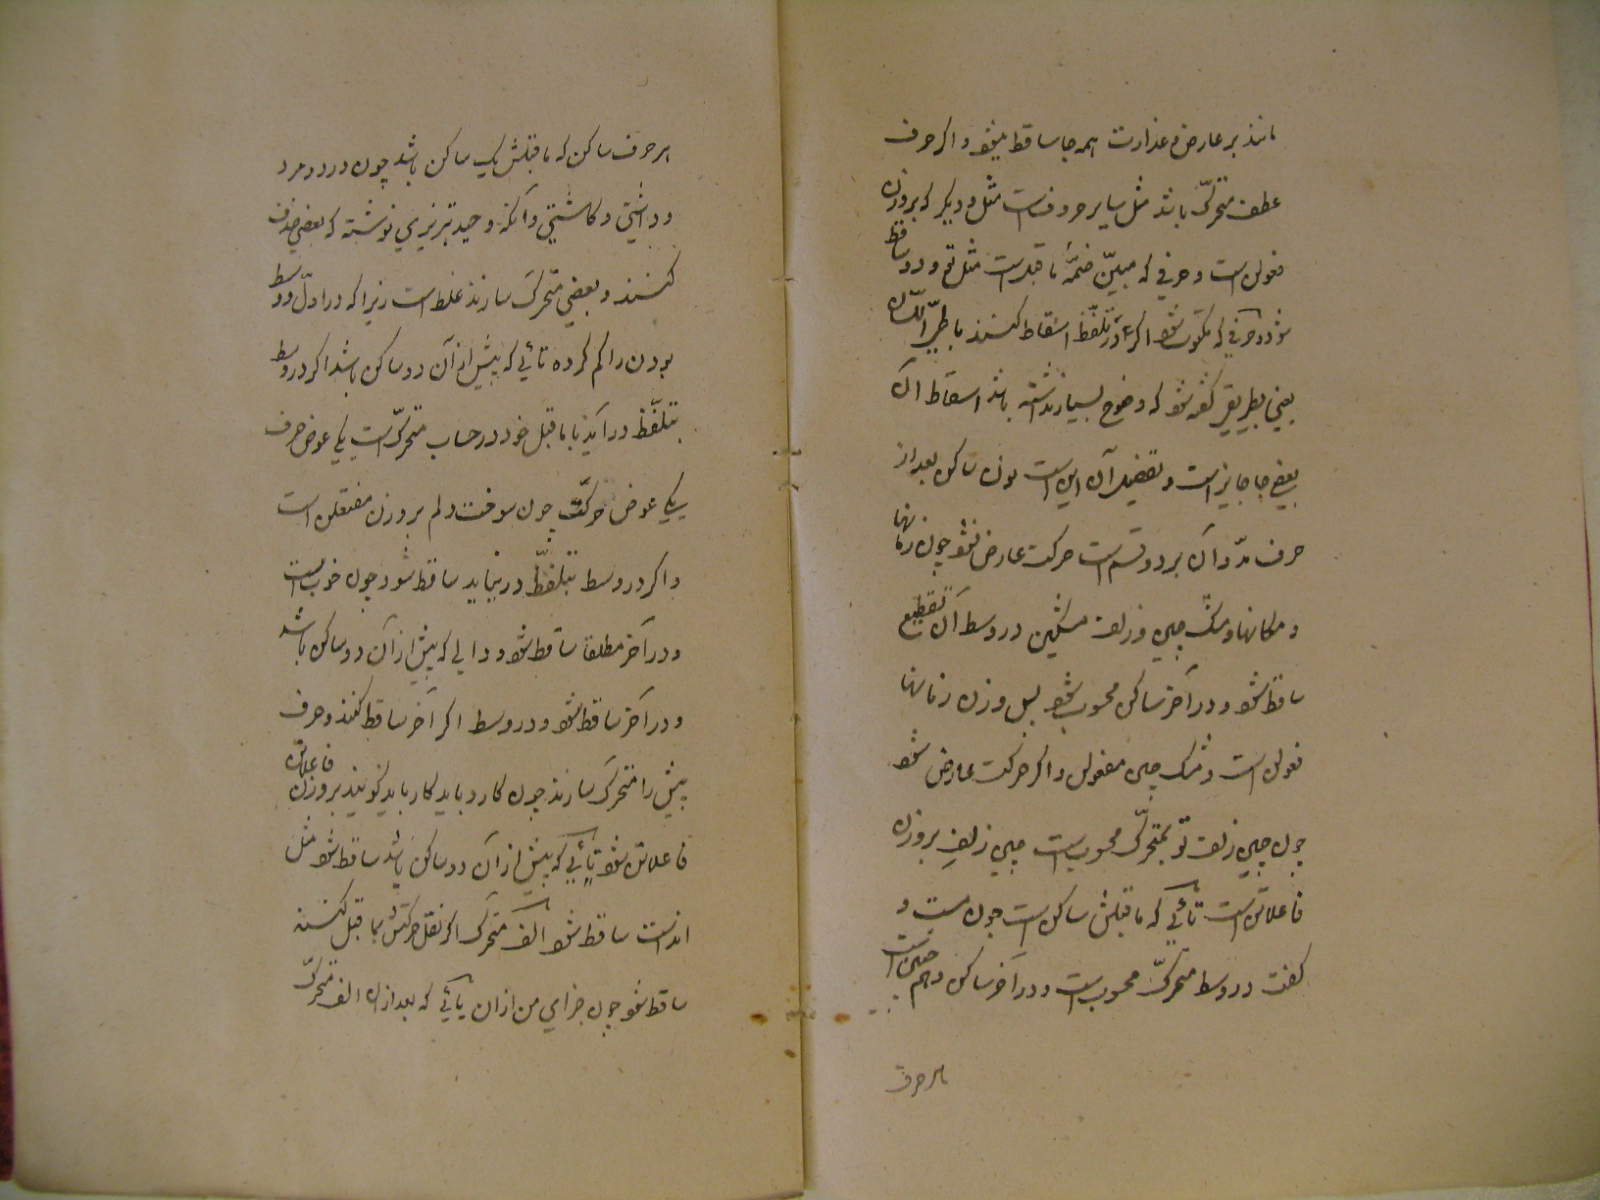 مانند بر عارض و عذارت همه جا ساقط میشود و اگر حرف
عطف متحرّک باشد مثل سایر حروفست مثل و دیگر که بر وزن
فعولن است و حرفی که مبیّن ضمّهٔ ماقبلست مثل تو و دو ساقط
شود و حرفی که مکتوب شود اگر در تلفّظ اسقاط کنند با طیّ اللّسان
یعنی بطریقی گفته شود که وضوح بسیار نداشته باشد اسقاط آن
بعضی جا جایز است و تفصیل آن این است نون ساکن بعد از
حرف مدّ و آن بر دو قسم است حرکت عارض نشود چون زمانها
و مکانها و مشک چین و زلف مشکین در وسط آن تقطیع
ساقط شود و در آخر ساکن محسوب شود پس وزن زمانها
فعولن است و مشک چین مفعولن و اگر حرکت عارض شود
چون چین زلف تو بمتحرّک محسوبست چین زلفِ بر وزن
فاعلاتن است تائی که ماقبلش ساکن است چون مست و
گفت در وسط متحرّک محسوبست و در آخر ساکن و هم چنین است
هر حرف
هر حرف ساکن که ماقبلش یک ساکن باشد چون درد و مرد
و داشتی و کاشتی و آنکه وحید تبریزی نوشته که بعضی حذف
کنند و بعضی متحرّک سازند غلط است زیرا که در اوّل و وسط
بودن را گم کرده تائی که پیش از آن دو ساکن باشد اگر در وسط
بتلفّظ در آید با ماقبل خود در حساب متحرّکست یکی عوض حرف
یکی عوض حرکت چون سوخت دلم بر وزن مفتعلن است
و اگر در وسط بتلفّظ در نیاید ساقط شود چون خوب است
و در آخر مطلقا ساقط شود و دالی که پیش از آن دو ساکن باشد
و در آخر ساقط شود و در وسط اگر آخر ساقط کنند و حرف
پیش را متحرّک سازند چون کارد باید کار باید گویند بر وزن فاعلاتن
فاعلاتن شود تائی که پیش از آن دو ساکن باشد ساقط شود مثل
ساقط شود الف متحرّک اگر نقل حرکتش بما قبل کنند
ساقط شود چون جزای من از آن یائی که بعد از آن الف متحرّک